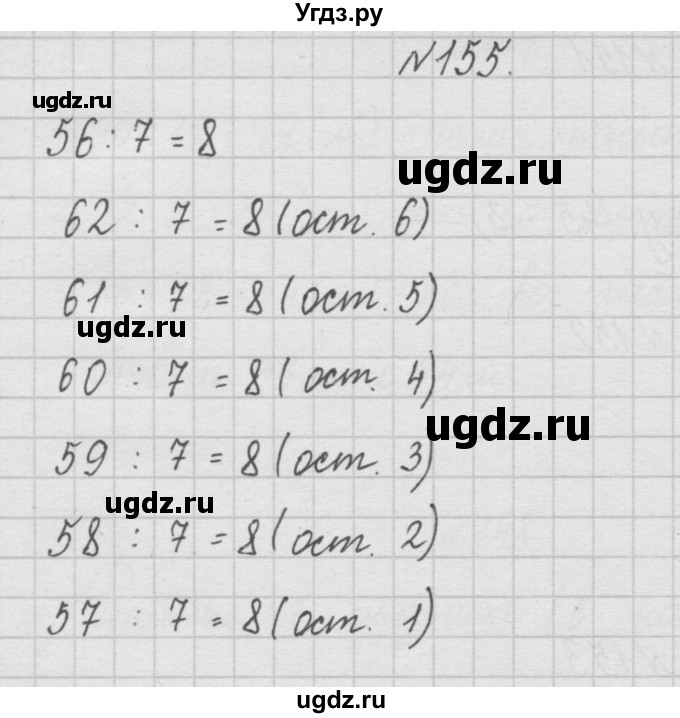 Угдз.ру
№155.
ugdz.ru
56 : 7 = 8
ugdz.ru
62 : 7 = 8 (ост. 6)
61 : 7 = 8 (ост. 5)
ugdz.ru
60 : 7 = 8 (ост. 4)
ugdz.ru
59 : 7 = 8 (ост. 3)
ugdz.ru
58 : 7 = 8 (ост. 2)
57 : 7 = 8 (ост. 1)
ugdz.ru